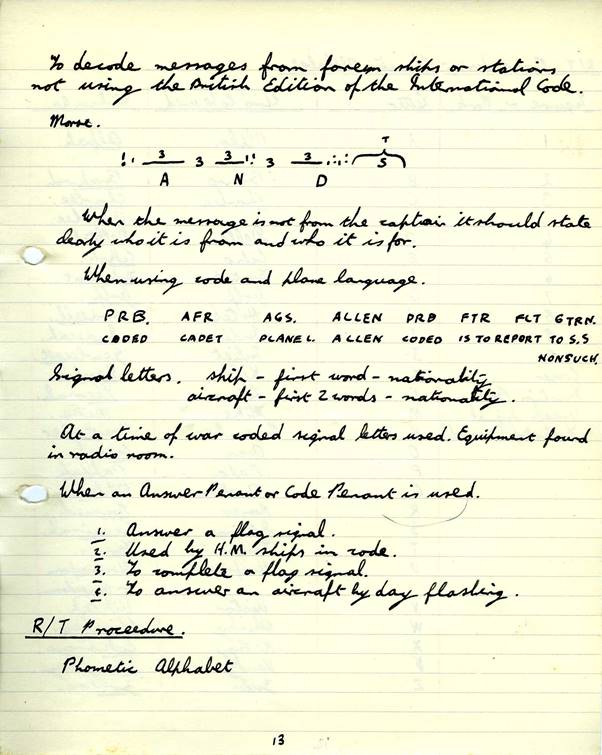 To decode messages from foreign ships or stations
not using the British Edition of the International Code.
Morse.
3 3 3 3 3 T
A N D S
When the message is not from the captain it should state
clearly who it is from and who it is for.
When using code and plane language.
PRB. AFR AGS. ALLEN PRB FTR FLT GTRN.
CODED CADET PLANE L. ALLEN CODED IS TO REPORT TO S.S
NONSUCH.
Signal letters. ship - first word - nationality
aircraft - first 2 words - nationality.
At a time of war coded signal letters used. Equipment found
in radio room.
When an Answer Penant or Code Penant is used.
1. Answer a flag signal.
2. Used by H.M. ships in code.
3. To complete a flag signal.
4. To answer an aircraft by day flashing.
R/T Proceedure.
Phometic Alphabet
13